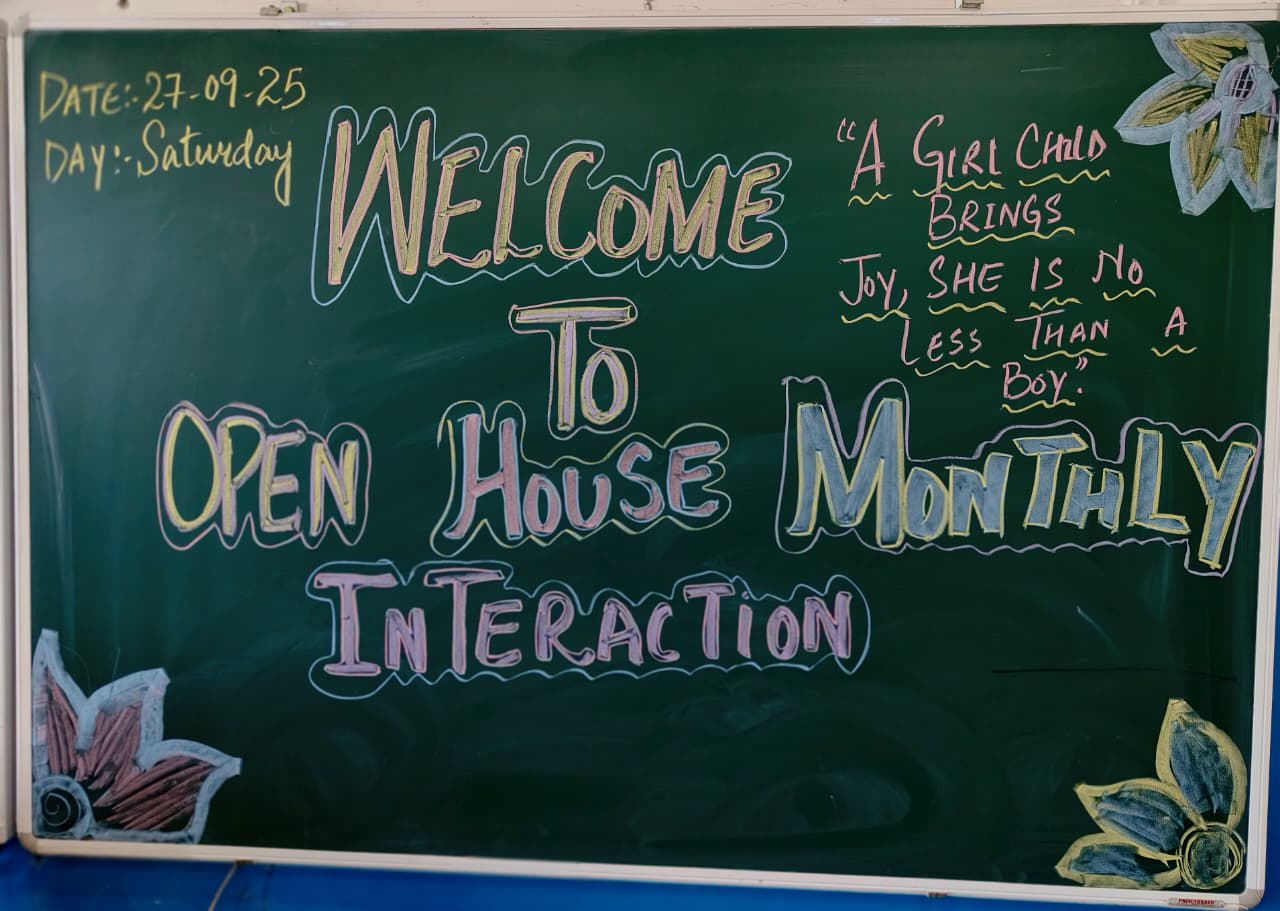 DATE:-27-09-25
DAY:-Saturday
WELCOME
TO
OPEN HOUSE MONTHLY
INTERACTION
"A GIRL CHILD
BRINGS
JOY, SHE IS NO
LESS THAN A
BOY."